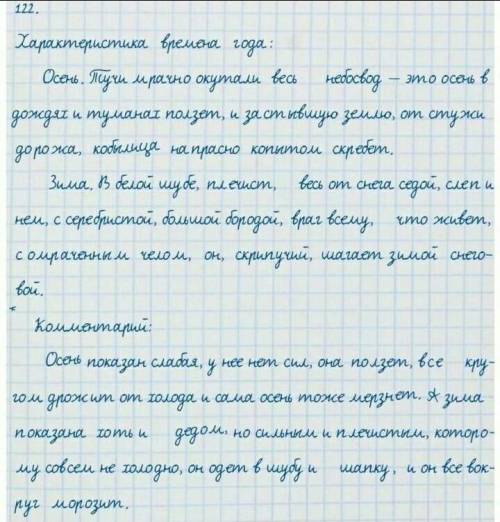 122.
Характеристика времена года:
Осень. Тучи мрачно окутали весь небосвод – это осень в
дождях и туманах ползет, и застывшую землю, от стужи
дорожа, кобылица напрасно копытом скребет.
Зима. В белой шубе, плечист, весь от снега седой, слеп и
нем, с серебристой, большой бородой, враг всему, что живет,
с омраченным челом, он, скрипучий, шагает зимой снего-
вой.
Комментарий:
Осень показан слабая, у нее нет сил, она ползет, все кру-
гом дрожит от холода и сама осень тоже мерзнет. А зима
показана хоть и дедом, но сильным и плечистым, которо-
му совсем не холодно, он одет в шубу и шапку, и он все вок-
руг морозит.